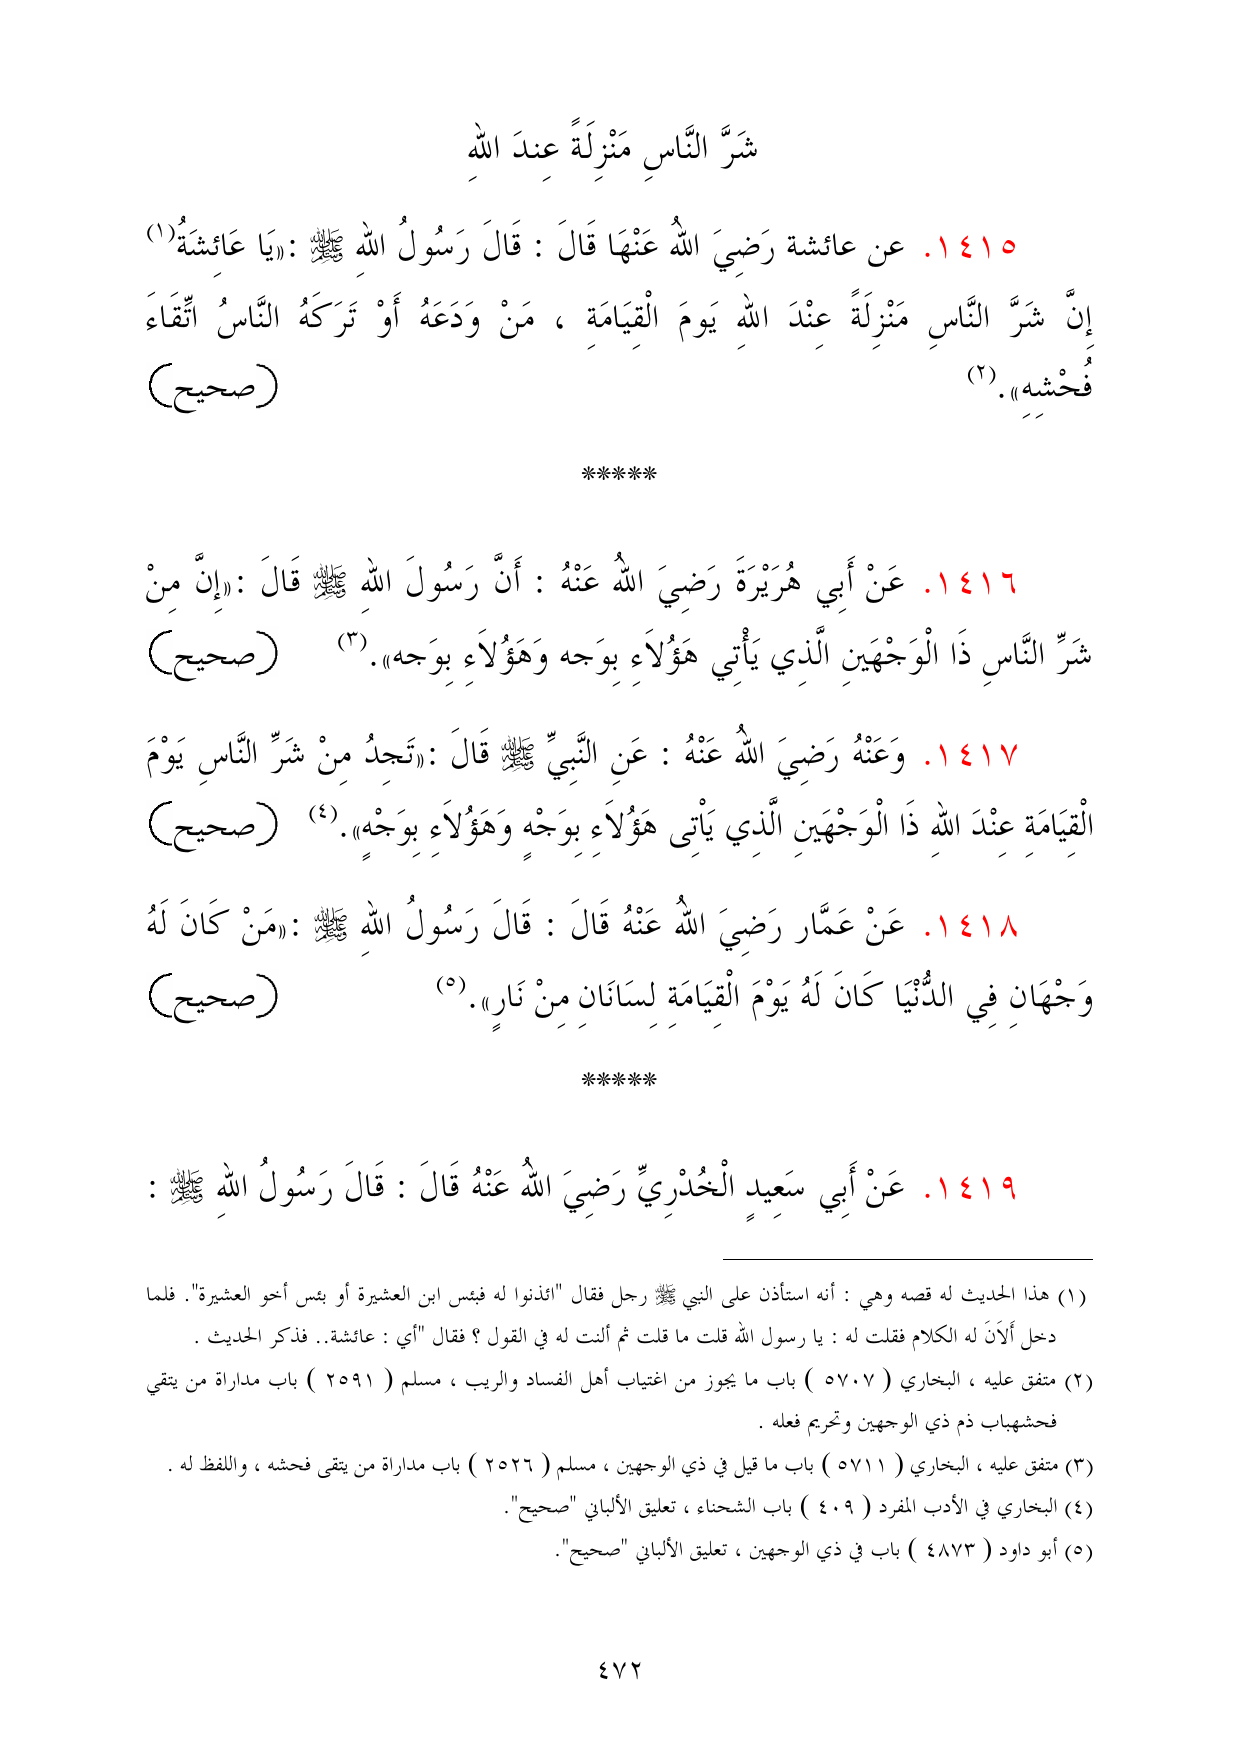 شَرَّ النَّاسِ مَنْزِلَةً عِندَ اللهِ
١٤١٥. عن عائشة رَضِيَ اللهُ عَنْهَا قَالَ : قَالَ رَسُولُ اللهِ ﷺ :«يَا عَائِشَةُ(١)
إِنَّ شَرَّ النَّاسِ مَنْزِلَةً عِنْدَ اللهِ يَومَ الْقِيَامَةِ ، مَنْ وَدَعَهُ أَوْ تَرَكَهُ النَّاسُ اتِّقَاءَ
فُحْشِهِ».(٢) (صحيح)
*****
١٤١٦. عَنْ أَبِي هُرَيْرَةَ رَضِيَ اللهُ عَنْهُ : أَنَّ رَسُولَ اللهِ ﷺ قَالَ :«إِنَّ مِنْ
شَرِّ النَّاسِ ذَا الْوَجْهَينِ الَّذِي يَأْتِي هَؤُلاَءِ بِوَجه وَهَؤُلاَءِ بِوَجه».(٣) (صحيح)
١٤١٧. وَعَنْهُ رَضِيَ اللهُ عَنْهُ : عَنِ النَّبِيِّ ﷺ قَالَ :«تَجِدُ مِنْ شَرِّ النَّاسِ يَوْمَ
الْقِيَامَةِ عِنْدَ اللهِ ذَا الْوَجْهَينِ الَّذِي يَأْتِى هَؤُلاَءِ بِوَجْهٍ وَهَؤُلاَءِ بِوَجْهٍ».(٤) (صحيح)
١٤١٨. عَنْ عَمَّار رَضِيَ اللهُ عَنْهُ قَالَ : قَالَ رَسُولُ اللهِ ﷺ :«مَنْ كَانَ لَهُ
وَجْهَانِ فِي الدُّنْيَا كَانَ لَهُ يَوْمَ الْقِيَامَةِ لِسَانَانِ مِنْ نَارٍ».(٥) (صحيح)
*****
١٤١٩. عَنْ أَبِي سَعِيدٍ الْخُدْرِيِّ رَضِيَ اللهُ عَنْهُ قَالَ : قَالَ رَسُولُ اللهِ ﷺ :
(١) هذا الحديث له قصه وهي : أنه استأذن على النبي ﷺ رجل فقال "ائذنوا له فبئس ابن العشيرة أو بئس أخو العشيرة". فلما
دخل أَلاَنَ له الكلام فقلت له : يا رسول الله قلت ما قلت ثم ألنت له في القول ؟ فقال "أي : عائشة.. فذكر الحديث .
(٢) متفق عليه ، البخاري ( ٥٧٠٧ ) باب ما يجوز من اغتياب أهل الفساد والريب ، مسلم ( ٢٥٩١ ) باب مداراة من يتقي
فحشهباب ذم ذي الوجهين وتحريم فعله .
(٣) متفق عليه ، البخاري ( ٥٧١١ ) باب ما قيل في ذي الوجهين ، مسلم ( ٢٥٢٦ ) باب مداراة من يتقى فحشه ، واللفظ له .
(٤) البخاري في الأدب المفرد ( ٤٠٩ ) باب الشحناء ، تعليق الألباني "صحيح".
(٥) أبو داود ( ٤٨٧٣ ) باب في ذي الوجهين ، تعليق الألباني "صحيح".
٤٧٢